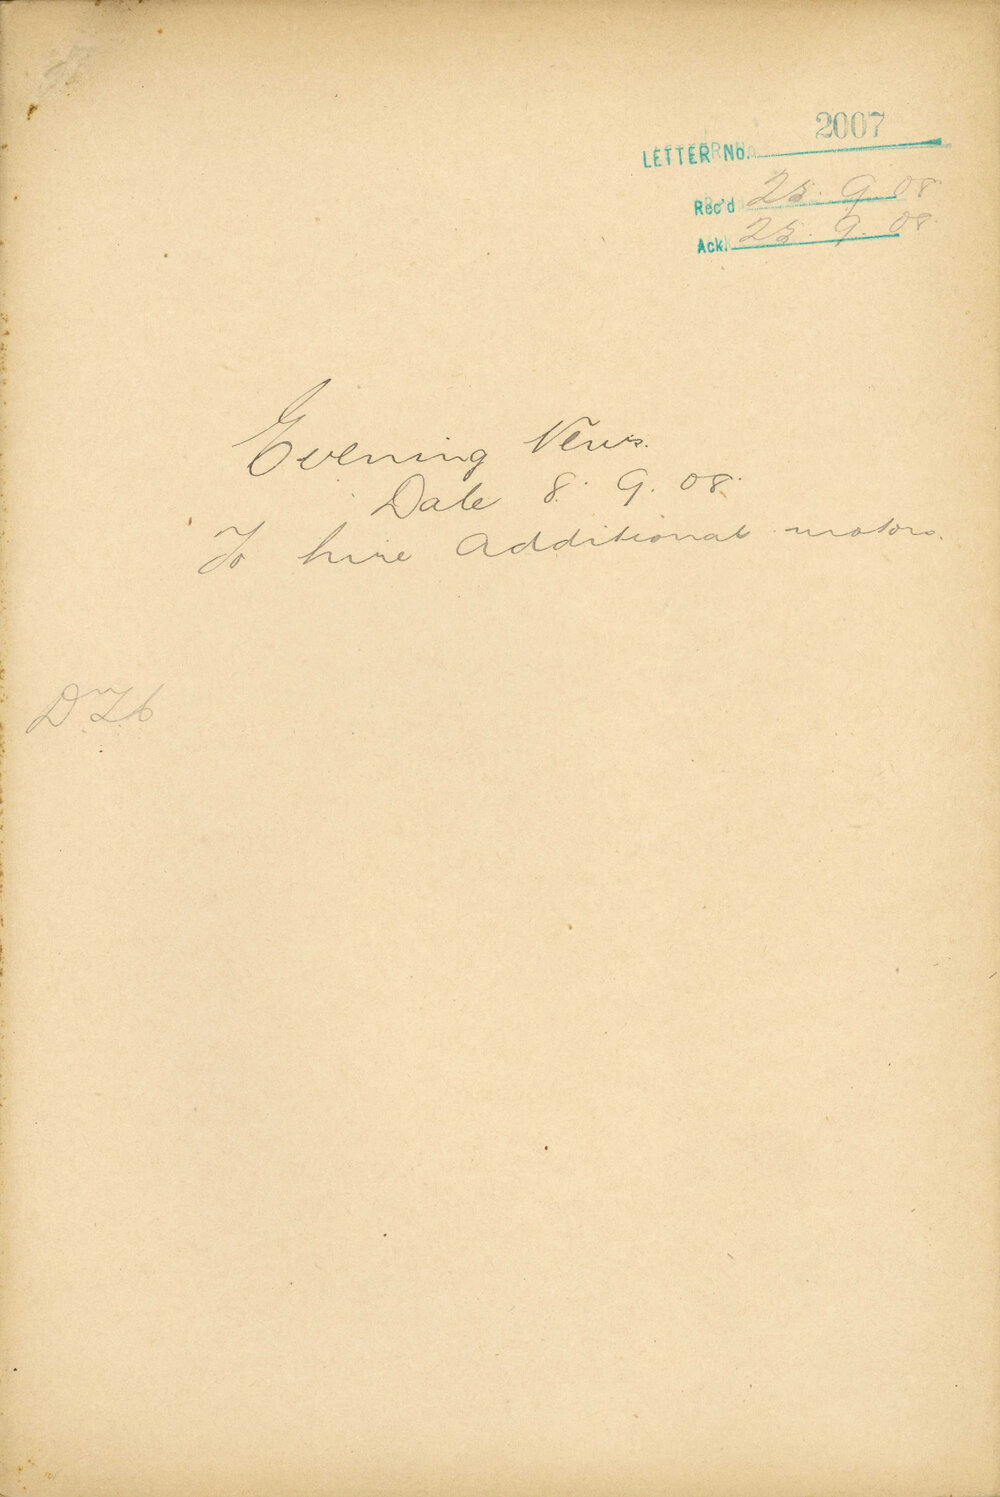 LETTER No. 2007
Rec'd 25. 9. 08
Ack. 25. 9. 08.
Evening News.
Date 8. 9. 08.
To hire additional motors.